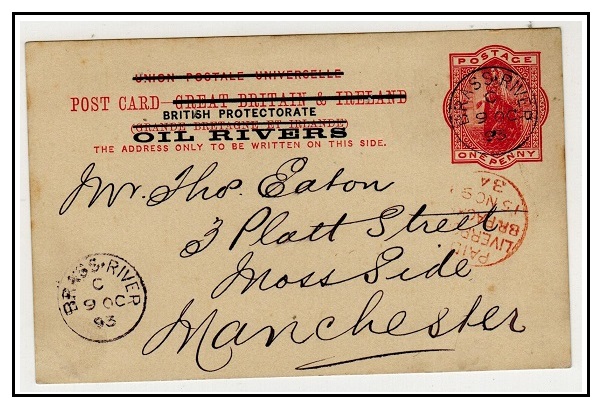 UNION POSTALE UNIVERSELLE
POST CARD—GREAT BRITAIN & IRELAND
BRITISH PROTECTORATE
(GRANDE BRETAGNE ET IRLANDE)
OIL RIVERS
THE ADDRESS ONLY TO BE WRITTEN ON THIS SIDE.
POSTAGE
ONE PENNY
BRASS·RIVER
C
9 OC
93
Mr. Thos. Eaton
3 Platt Street
Moss Side
Manchester
PAID
BR PACK
13 NO 9
3A
BRASS·RIVER
C
9 OC
93